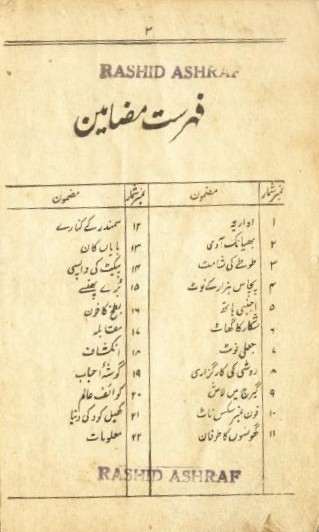 ۲
RASHID ASHRAF
فہرست مضامین
نمبر شمار مضمون
۱ اداریہ
۲ بھیانک آدمی
۳ طوطے کی شامت
۴ پچاس ہزار کے نوٹ
۵ اجنبی ہاتھ
۶ شکار کا گھاٹ
۷ جعلی نوٹ
۸ روشی کی کارگزاری
۹ گیرج میں لاش
۱۰ فون نمبر سکس ناٹ
۱۱ گھونسوں کا طوفان
نمبر شمار مضمون
۱۲ سمندر کے کنارے
۱۳ بایاں کان
۱۴ پیکٹ کی واپسی
۱۵ بُرے پھنسے
۱۶ بطخ کا خون
۱۷ مقابلہ
۱۸ انکشاف
۱۹ گوشۂ احباب
۲۰ کوائف عالم
۲۱ کھیل کود کی دنیا
۲۲ معلومات
RASHID ASHRAF